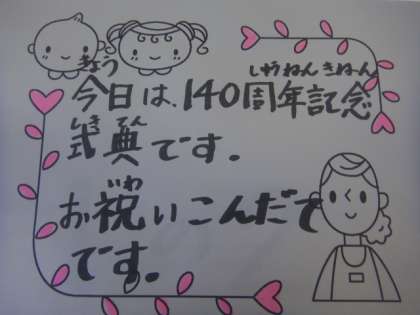 きょう しゅうねん きねん
今日は、140周年記念
しき てん
式典です。
いわ
お祝いこんだて
です。